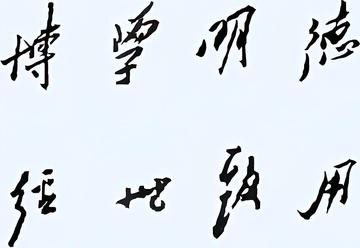 博學明德
经世致用